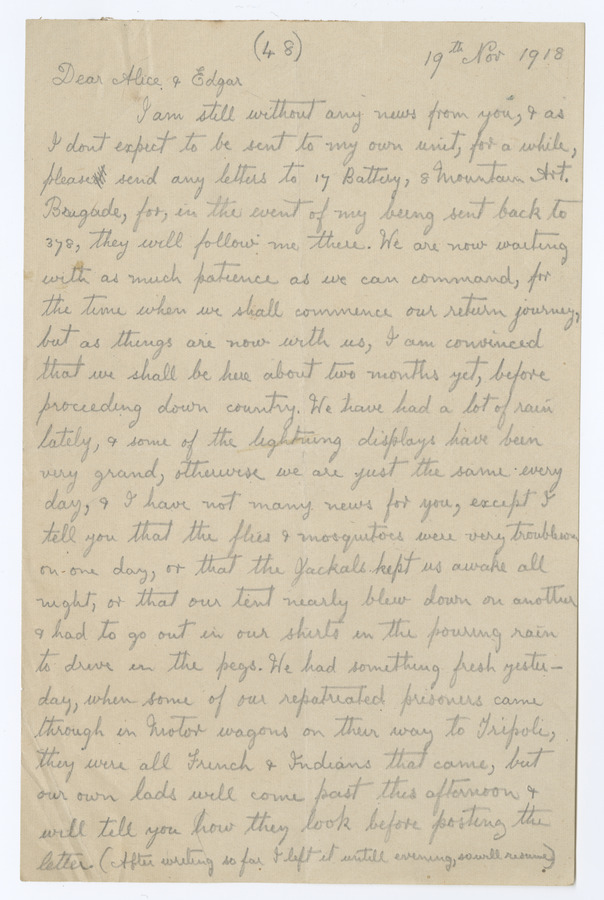 (48)
19th Nov 1918
Dear Alice & Edgar
I am still without any news from you, & as
I dont expect to be sent to my own unit, for a while,
please send any letters to 17 Battery, 8 Mountain Art.
Brigade, for, in the event of my being sent back to
378, they will follow me there. We are now waiting
with as much patience as we can command, for
the time when we shall commence our return journey,
but as things are now with us, I am convinced
that we shall be here about two months yet, before
proceeding down country. We have had a lot of rain
lately, & some of the lightning displays have been
very grand, otherwise we are just the same every
day, & I have not many news for you, except I
tell you that the flies & mosquitoes were very troublesome
on one day, or that the Jackals kept us awake all
night, or that our tent nearly blew down on another
& had to go out in our shirts in the pouring rain
to drive in the pegs. We had something fresh yester-
day, when some of our repatriated prisoners came
through in Motor wagons on their way to Tripoli,
they were all French & Indians that came, but
our own lads will come past this afternoon &
will tell you how they look before posting the
letter. (After writing so far I left it untill evening, so will resume)